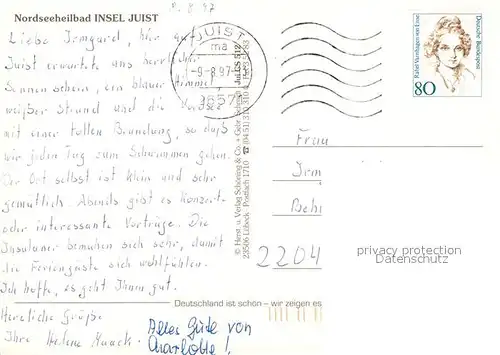 Nordseeheilbad INSEL JUIST
2.8.97
Liebe Irmgard, hier auf
Juist erwartete uns herrlicher
Sonnenschein, ein blauer Himmel,
weißer Strand und die Nordsee
mit einer tollen Brandung, so daß
wir jeden Tag zum Schwimmen gehen.
Der Ort selbst ist klein und sehr
gemütlich. Abends gibt es Konzerte
oder interessante Vorträge. Die
Insulaner bemühen sich sehr, damit
die Feriengäste sich wohlfühlen.
Ich hoffe, es geht Ihnen gut.
Herzliche Grüße
Ihre Helene
Alles Gute von
Charlotte!
JUIST
-9-8.97
© Herst. u. Verlag Schöning & Co. + Gebr. Schmidt
23506 Lübeck Postfach 1710
Deutschland ist schön – wir zeigen es
Rahel Varnhagen von Ense
Deutsche Bundespost
80
Frau
Irm
Beh
2204
privacy protection
Datenschutz